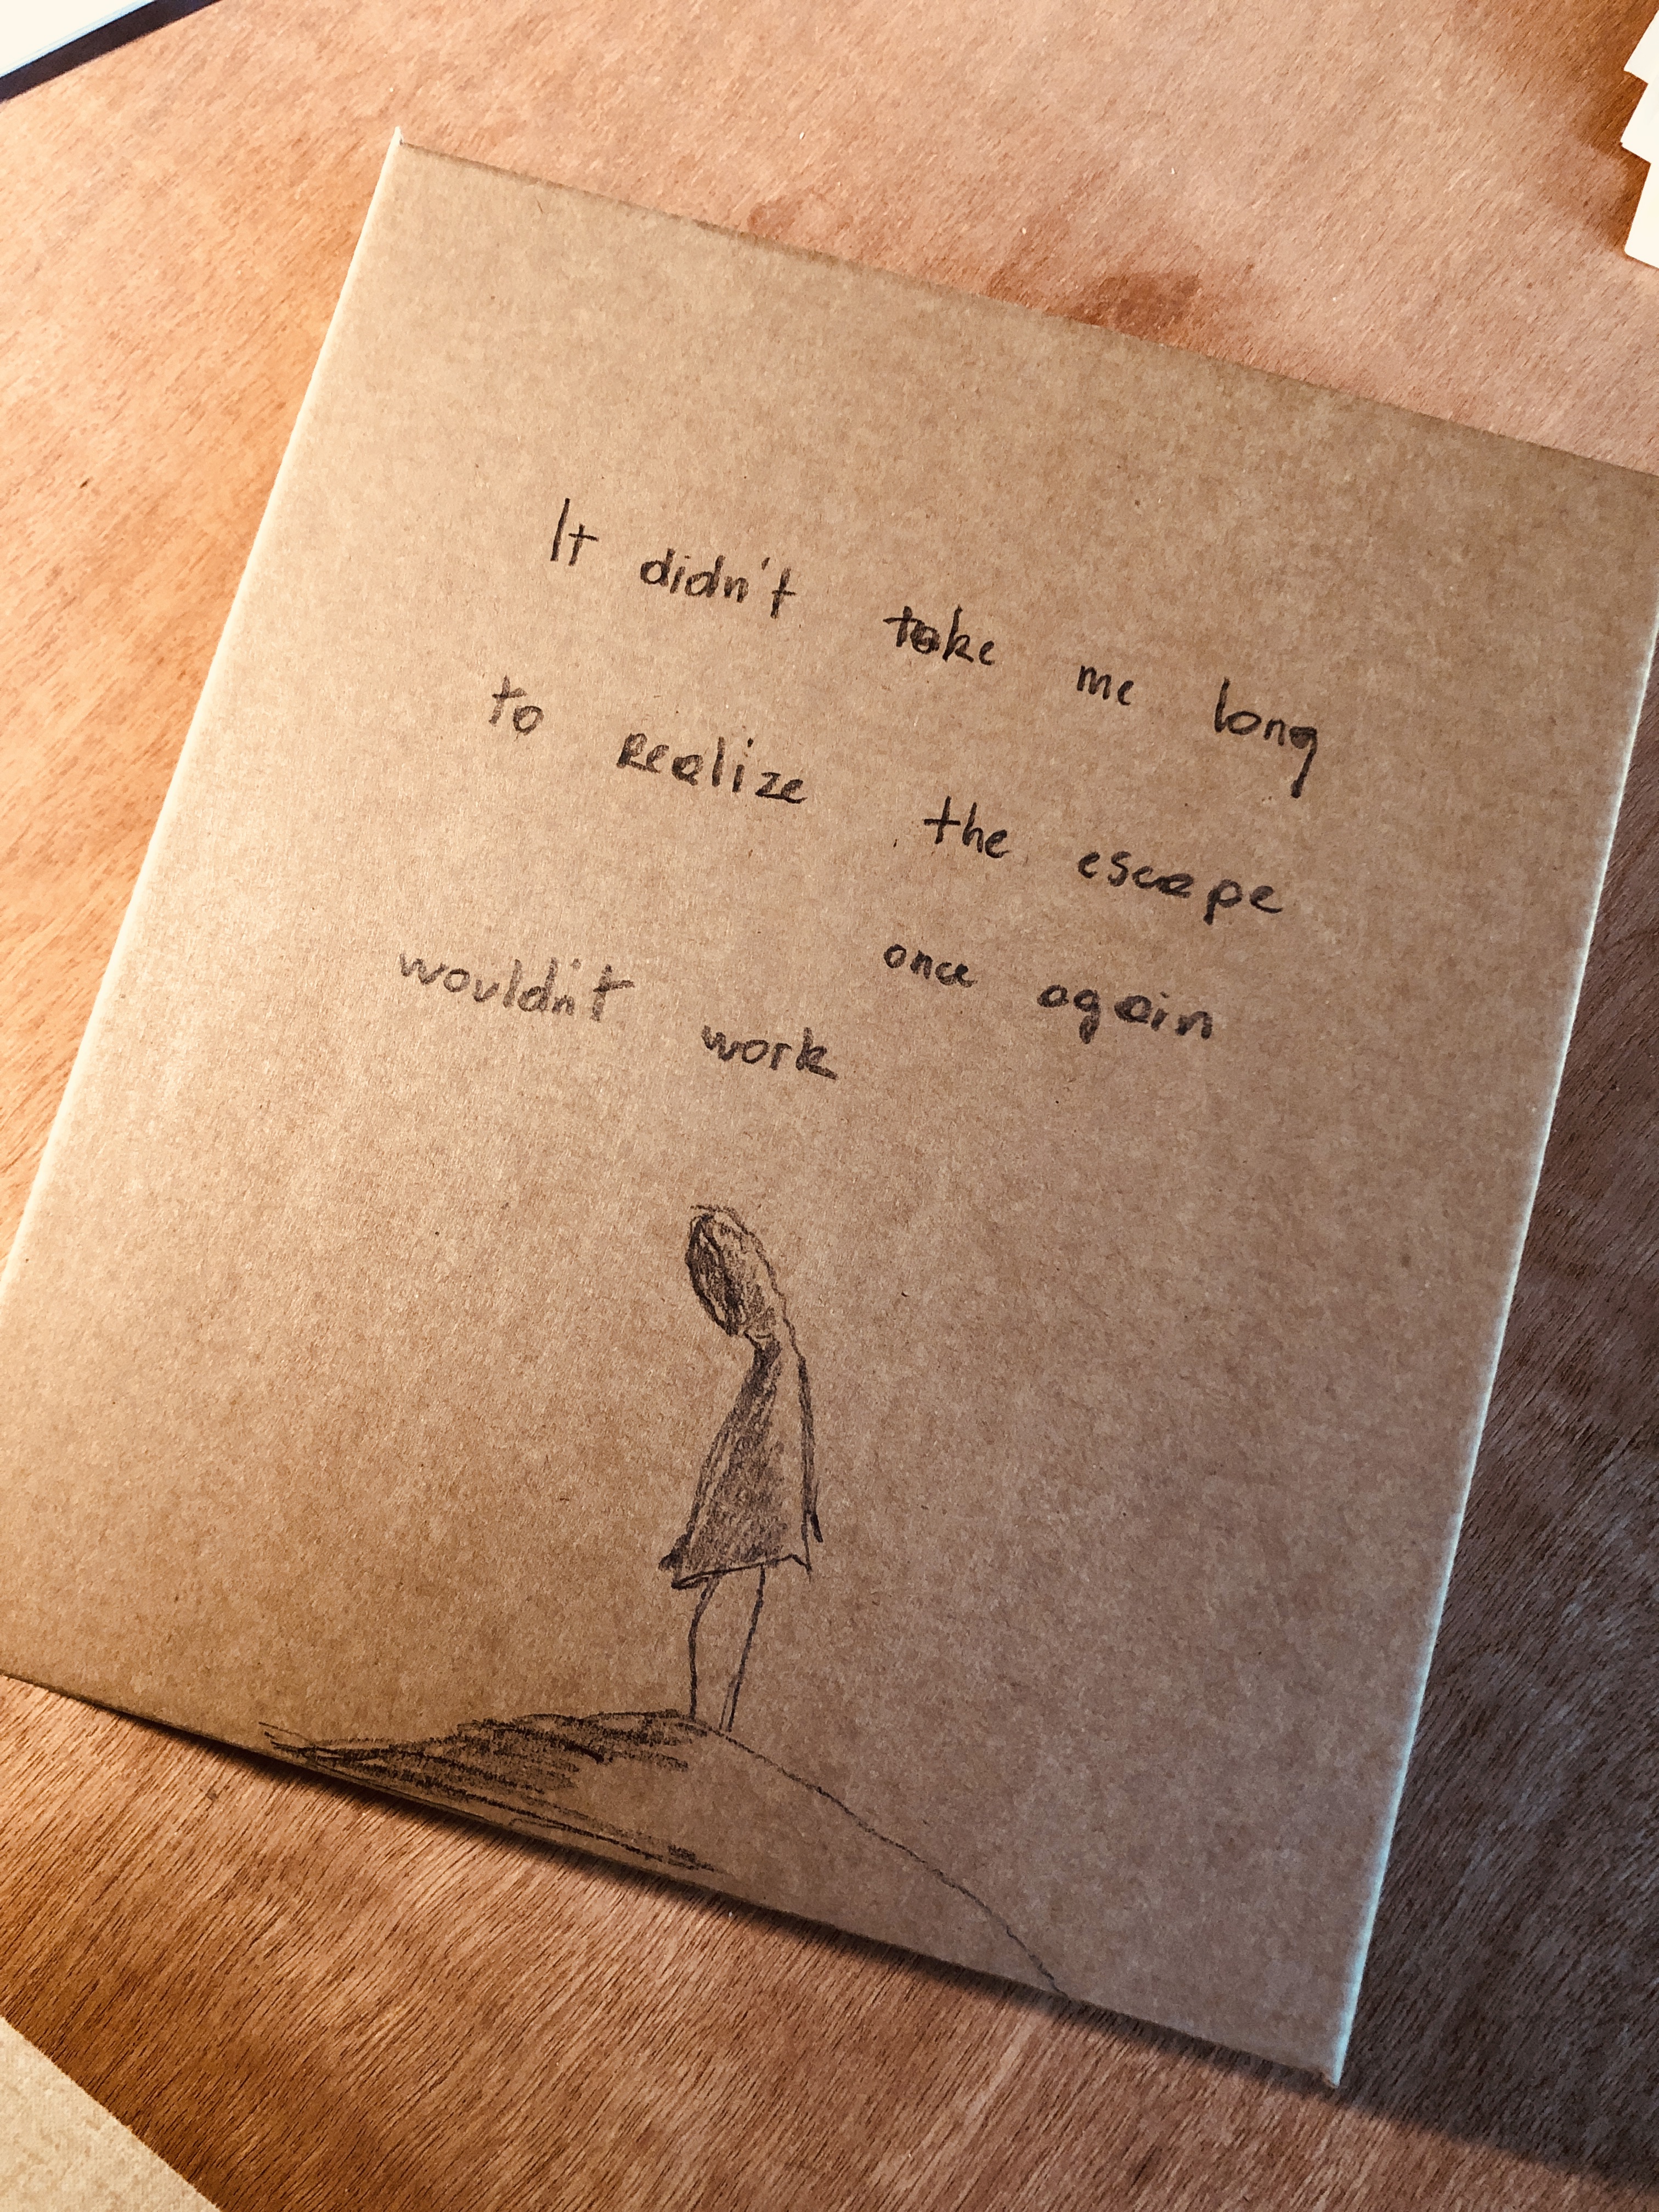 It didn't take me long
to realize the escape
once again
wouldn't work